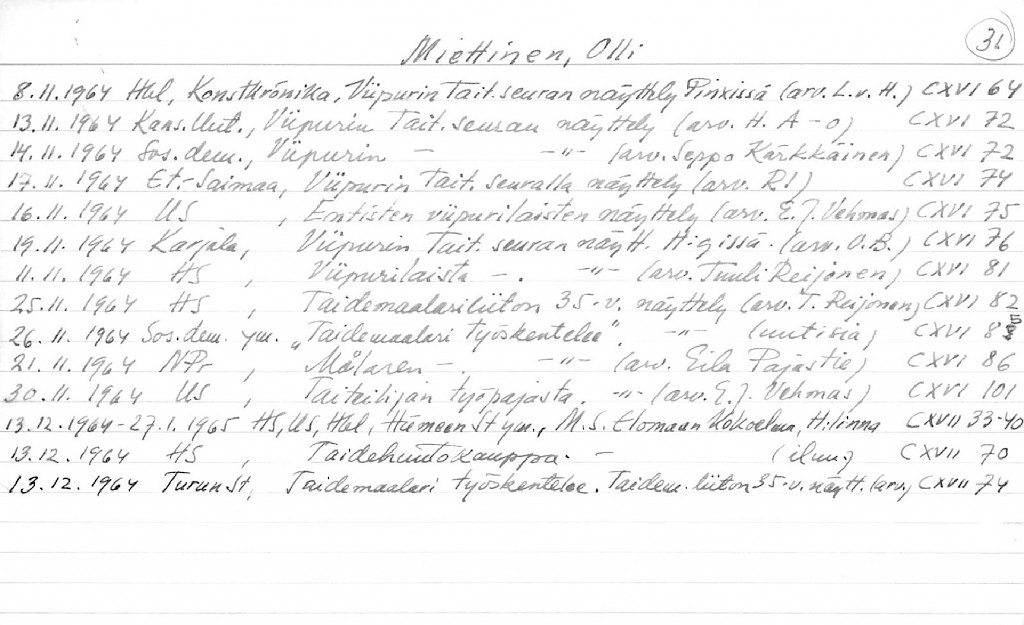 31
Miettinen, Olli
8.11.1964 Hbl, Konstkrönika, Viipurin Tait.seuran näyttely Pinxissä (arv. L.v.H.) CXVI 64
13.11.1964 Kans.Uut., Viipurin Tait.seuran näyttely (arv. H. A-o) CXVI 72
14.11.1964 Sos.dem., Viipurin - -"- (arv. Seppo Kärkkäinen) CXVI 72
17.11.1964 Et.-Saimaa, Viipurin Tait.seuralla näyttely (arv. RI) CXVI 74
16.11.1964 US , Entisten viipurilaisten näyttely (arv. E.J. Vehmas) CXVI 75
19.11.1964 Karjala, Viipurin Tait.seuran näytt. H:gissä. (arv. O.B.) CXVI 76
11.11.1964 HS , Viipurilaista -. -"- (arv. Tuuli Reijonen) CXVI 81
25.11.1964 HS , Taidemaalariliiton 35-v. näyttely (arv. T. Reijonen) CXVI 82
26.11.1964 Sos.dem. ym. "Taidemaalari työskentelee". -"- (uutisia) CXVI
21.11.1964 NPr , Målaren -. -"- (arv. Eila Pajastie) CXVI 86
30.11.1964 US , Taiteilijan työpajasta. -"- (arv. E.J. Vehmas) CXVI 101
13.12.1964-27.1.1965 HS, US, Hbl, Hämeen St ym., M.S. Elomaan kokoelma, H:linna CXVII 33-40
13.12.1964 HS , Taidehuutokauppa. - (ilm.) CXVII 70
13.12.1964 Turun St, Taidemaalari työskentelee. Taidem.liiton 35-v. näytt. (arv.) CXVII 74